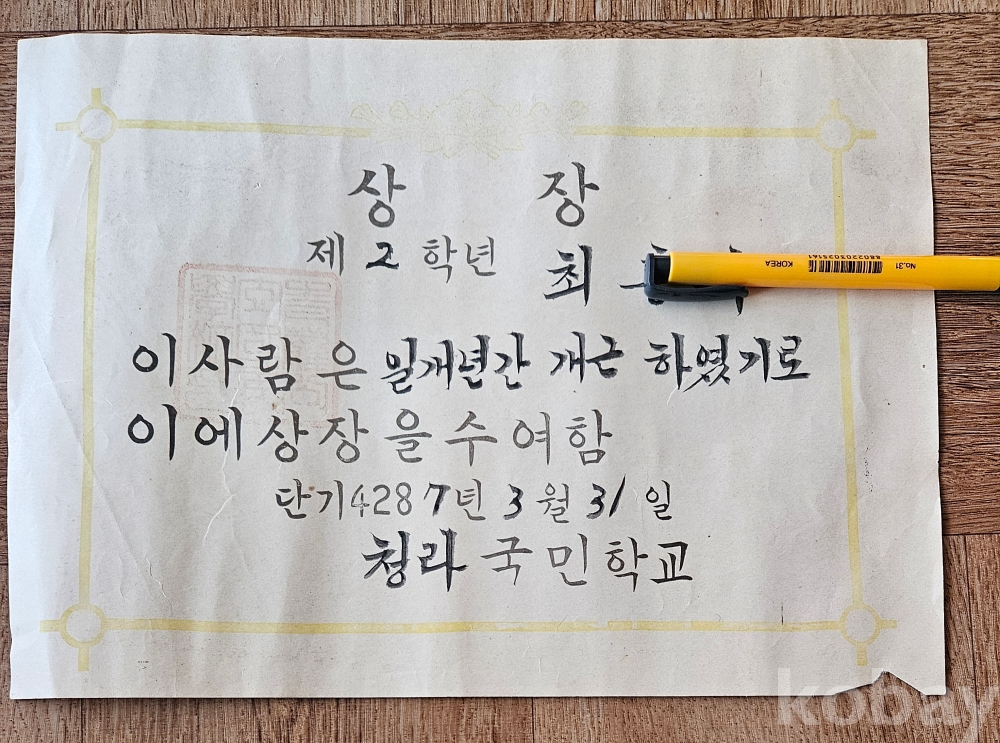 상 장
제 2 학년
최
이 사람은 일개년간 개근 하였기로
이에 상장을 수여함
단기 4287년 3월 31일
청라국민학교
KOREA
8802203025161
No.31
kobay